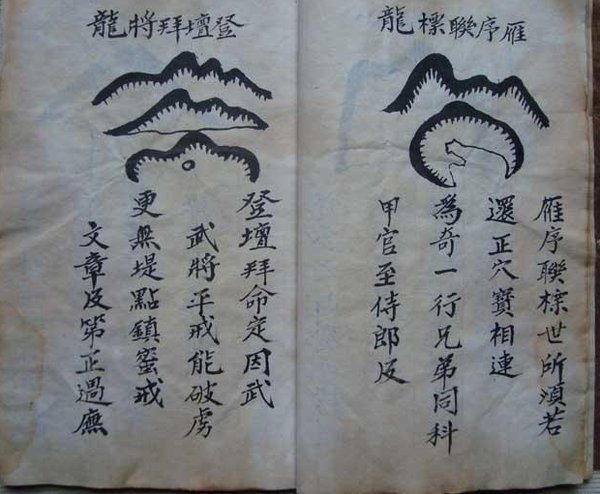 雁序聯標龍
雁序聯標世所須若
還正穴寶相連
為奇一行兄弟同科
甲官至侍郎反
登壇拜將龍
登壇拜命定因武
武將平戎能破虜
更無堤點鎮蜜戎
文章及第正過廡